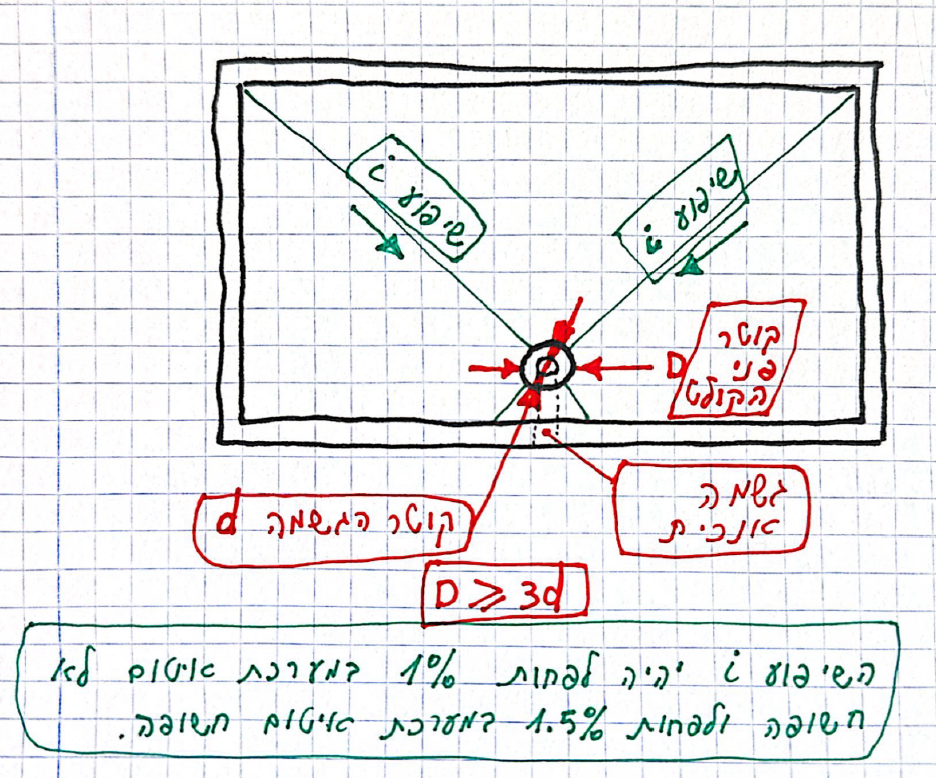 שיפוע i
שיפוע i
D
קוטר
פני
הקולט
קוטר הגשמה d
גשמה
אנכית
D ⩾ 3d
השיפוע i יהיה לפחות 1% במערכת איטום לא
חשופה ולפחות 1.5% במערכת איטום חשופה.